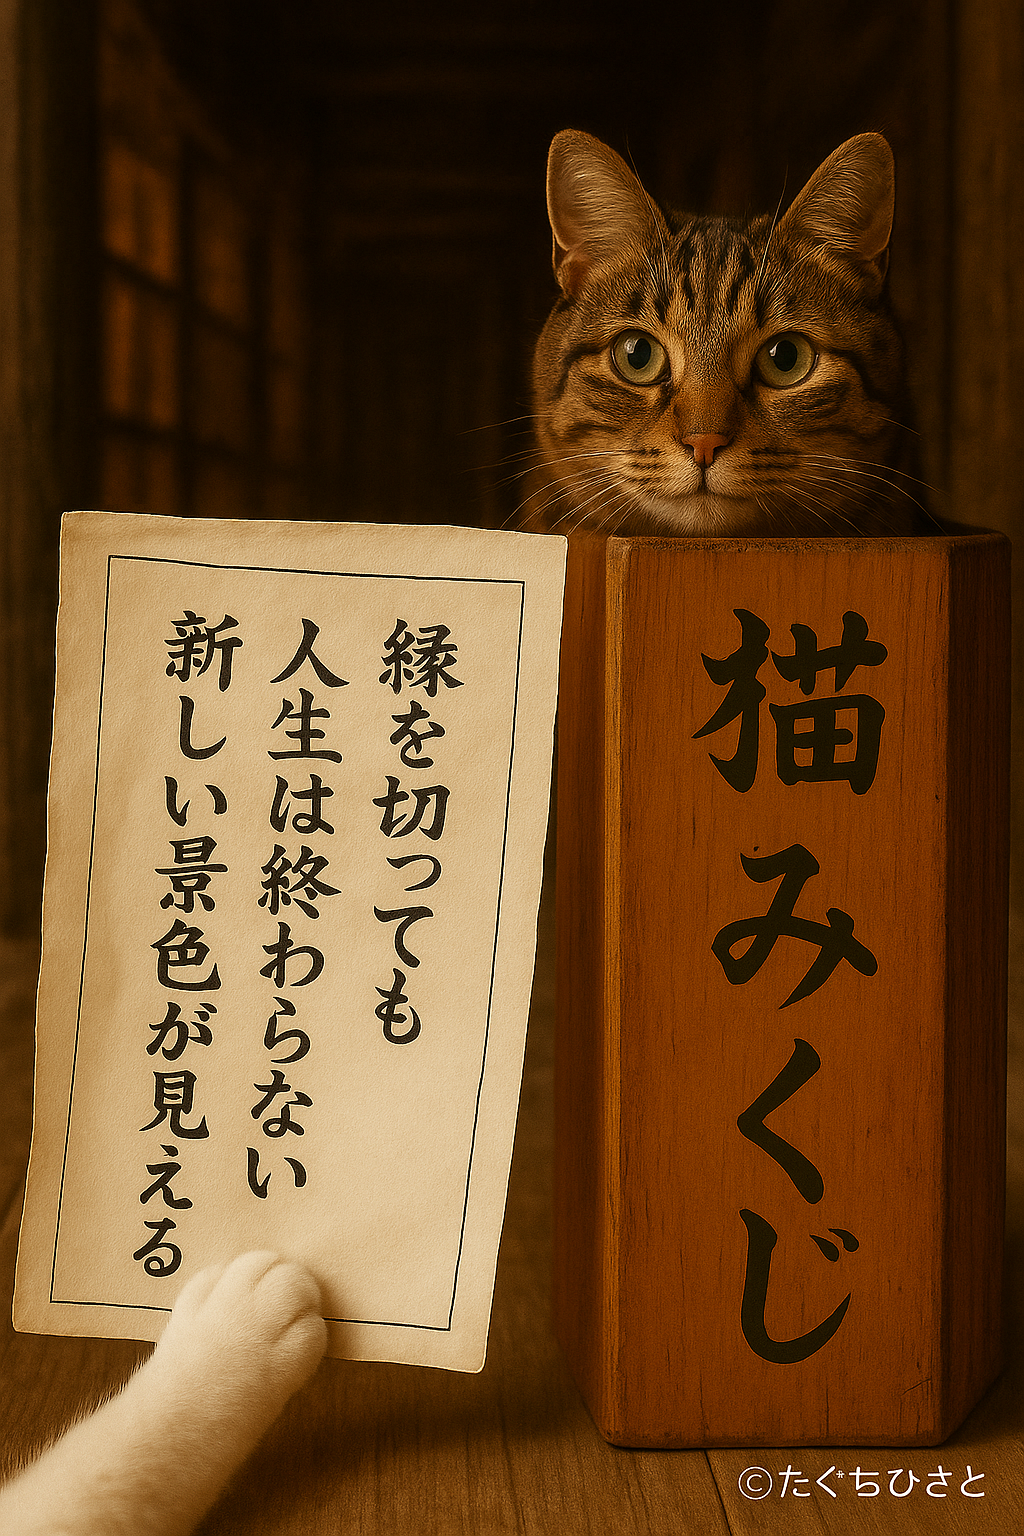 縁を切っても
人生は終わらない
新しい景色が見える
猫みくじ
©たぐちひさと